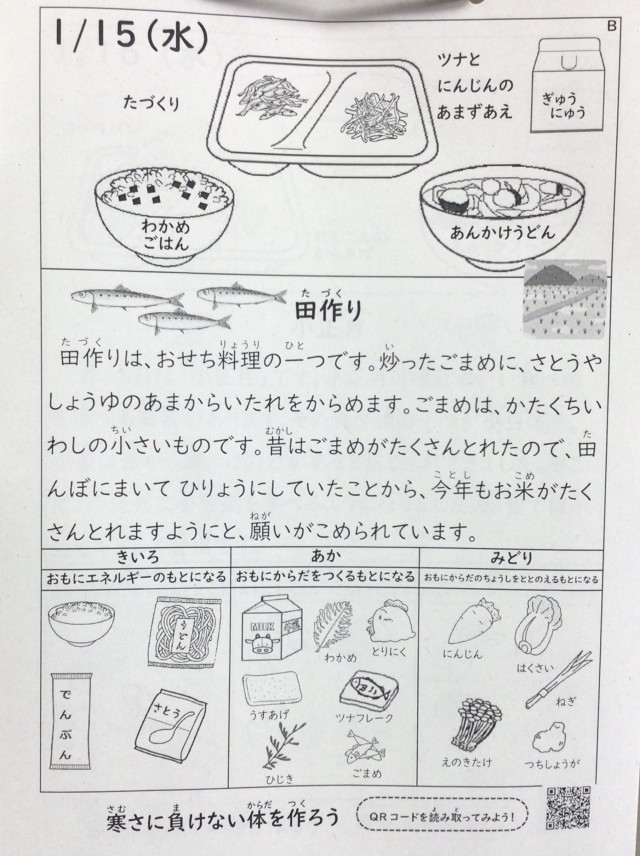 1/15(水)
B
たづくり
ツナと
にんじんの
あまずあえ
ぎゅう
にゅう
わかめ
ごはん
あんかけうどん
田作り
田作りは、おせち料理の一つです。炒ったごまめに、さとうや
しょうゆのあまからいたれをからめます。ごまめは、かたくちい
わしの小さいものです。昔はごまめがたくさんとれたので、田
んぼにまいて ひりょうにしていたことから、今年もお米がたく
さんとれますようにと、願いがこめられています。
きいろ
おもにエネルギーのもとになる
うどん
でんぷん
さとう
あか
おもにからだをつくるもとになる
MILK
わかめ
とりにく
うすあげ
ツナフレーク
ひじき
ごまめ
みどり
おもにからだのちょうしをととのえるもとになる
にんじん
はくさい
ねぎ
えのきたけ
つちしょうが
寒さに負けない体を作ろう
QRコードを読み取ってみよう!